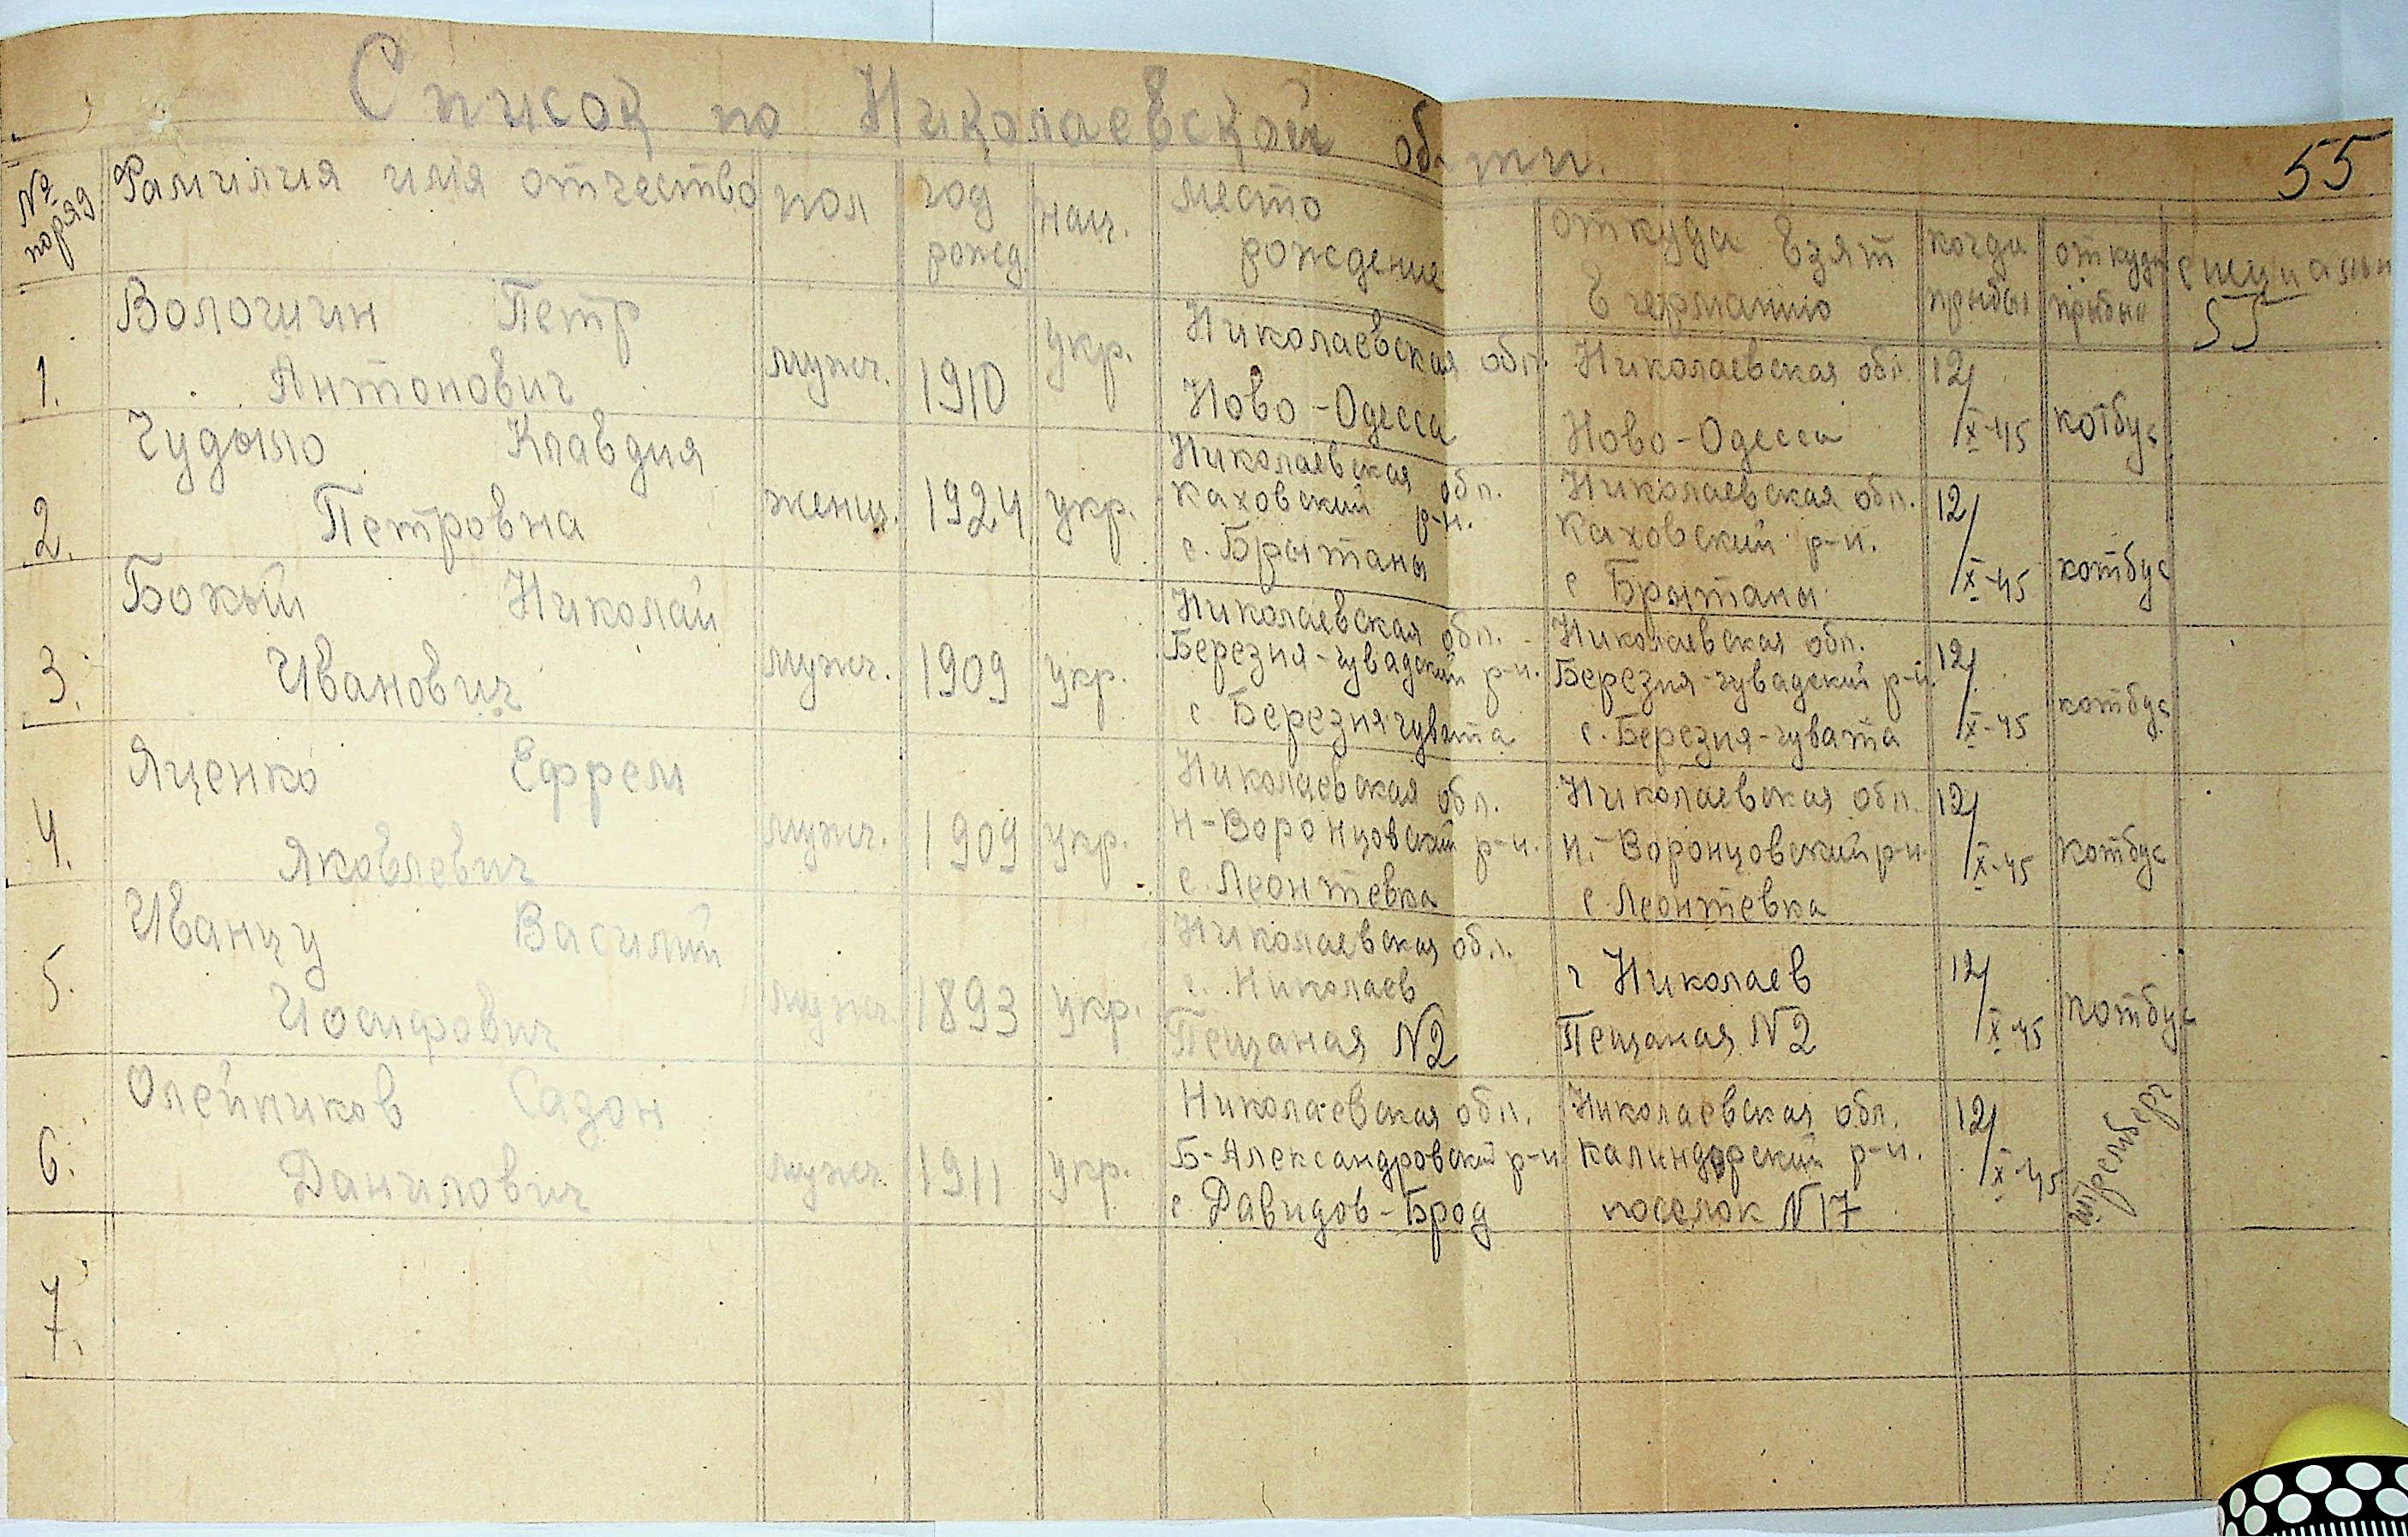 Список по Николаевской области.
55
№ поряд
Фамилия имя отчество
пол
год рожд.
нац.
место рождение
откуда взят в германию
когда прибыл
откуда прибыл
специальн
55
1.
Вологигин Петр
Антонович
мужч.
1910
укр.
Николаевская обл.
Ново-Одесса
Николаевская обл.
Ново-Одесса
12/X-45
котбус
2.
Чудыло Клавдия
Петровна
женщ.
1924
укр.
Николаевская обл.
Каховский р-н.
с. Брытаны
Николаевская обл.
Каховский р-н.
с Брытаны
12/X-45
котбус
3.
Божый Николай
Иванович
мужч.
1909
укр.
Николаевская обл.
Березня-чувадский р-н.
с Березнячувата
Николаевская обл.
Березня-чувадский р-н.
с. Березня-чувата
12/X-45
котбус
4.
Яценко Ефрем
Яковлевич
мужч.
1909
укр.
Николаевская обл.
Н-Воронцовский р-н.
с. Леонтевка
Николаевская обл.
Н.-Воронцовский р-н.
с. Леонтевка
12/X-45
котбус
5.
Иванцу Василий
Иосифович
мужч
1893
укр.
Николаевская обл.
г. Николаев
Пещаная N2
г Николаев
Пещаная N2
12/X-45
котбус
6.
Олейников Садон
Данилович
мужч.
1911
укр.
Николаевская обл.
Б-Александровский р-н
с. Давидов-Брод
Николаевская обл.
Калиндорский р-н.
поселок N17
12/X-45
штремберг
7.